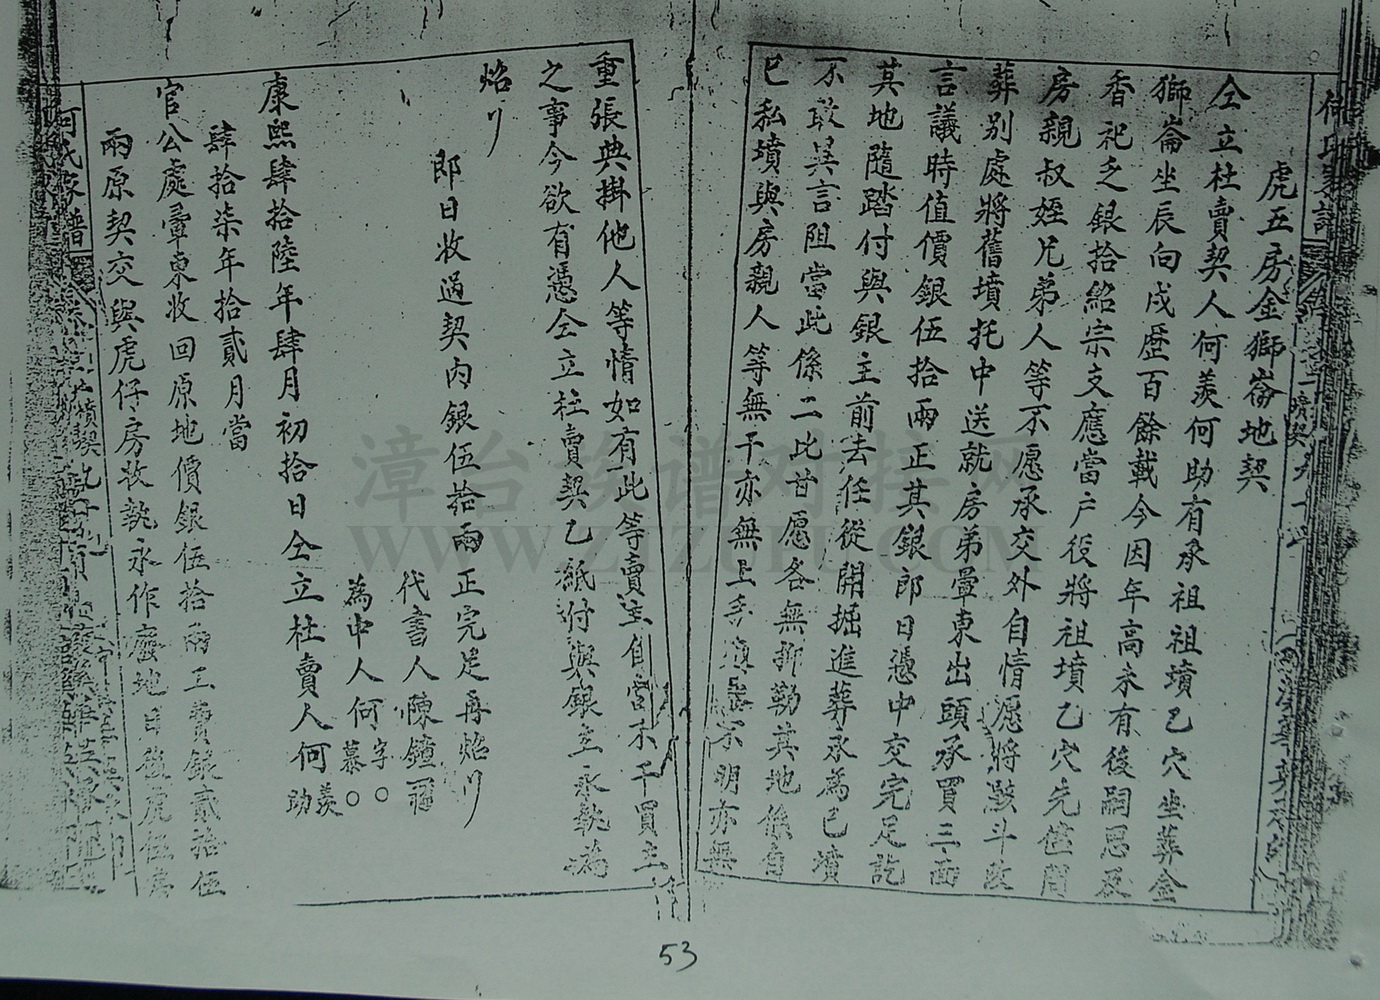 虎五房金獅崙地契
仝立杜賣契人何羨何助有承祖祖墳乙穴坐葬金
獅崙坐辰向戌歷百餘載今因年高未有後嗣思及
香祀乏銀拾紹宗支應當戶役將祖墳乙穴先儘問
房親叔姪兄弟人等不愿承交外自情愿將骸斗改
葬別處將舊墳托中送就房弟暈東出頭承買三面
言議時值價銀伍拾兩正其銀即日憑中交完足訖
其地隨踏付與銀主前去任從開掘進葬承為已墳
不敢異言阻當此係二比甘愿各無抑勒其地係自
已私墳與房親人等無干亦無上手 不明亦無
重張典掛他人等情如有此等賣主自當不干買主
之事今欲有憑仝立杜賣契乙紙付與銀主永執為
炤
即日收過契內銀伍拾兩正完足再炤
代書人陳鍾
為中人何字慕
康熙肆拾陸年肆月初拾日仝立杜賣人何羨助
肆拾柒年拾貳月當
官公處暈東收回原地價銀伍拾兩工費銀貳拾伍
兩原契交與虎仔房收執永作 地日後虎伍房
何氏家譜
53
漳台族谱对接网
WWW.ZTZUPU.COM